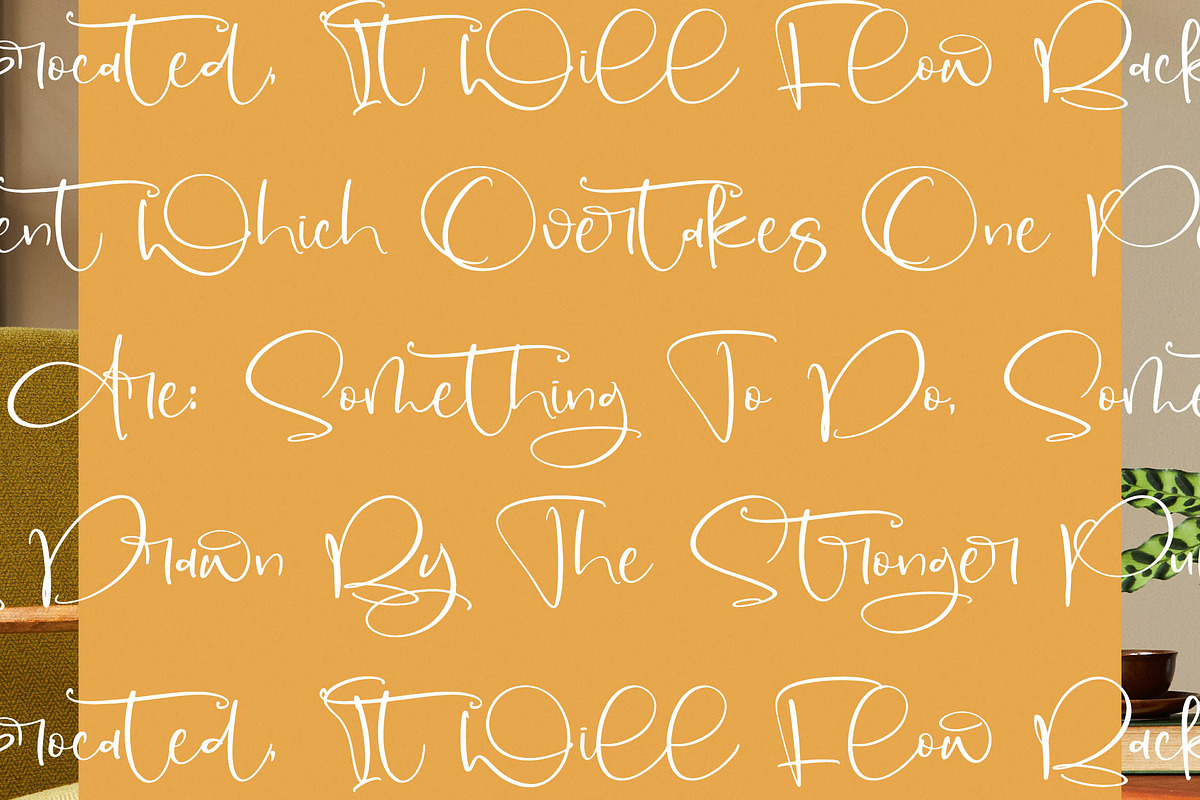 rocated, It Will Flow Back
ent Which Overtakes One
Are: Something To Do, Some
Drawn By The Stronger Pu
rocated, It Will Flow Back